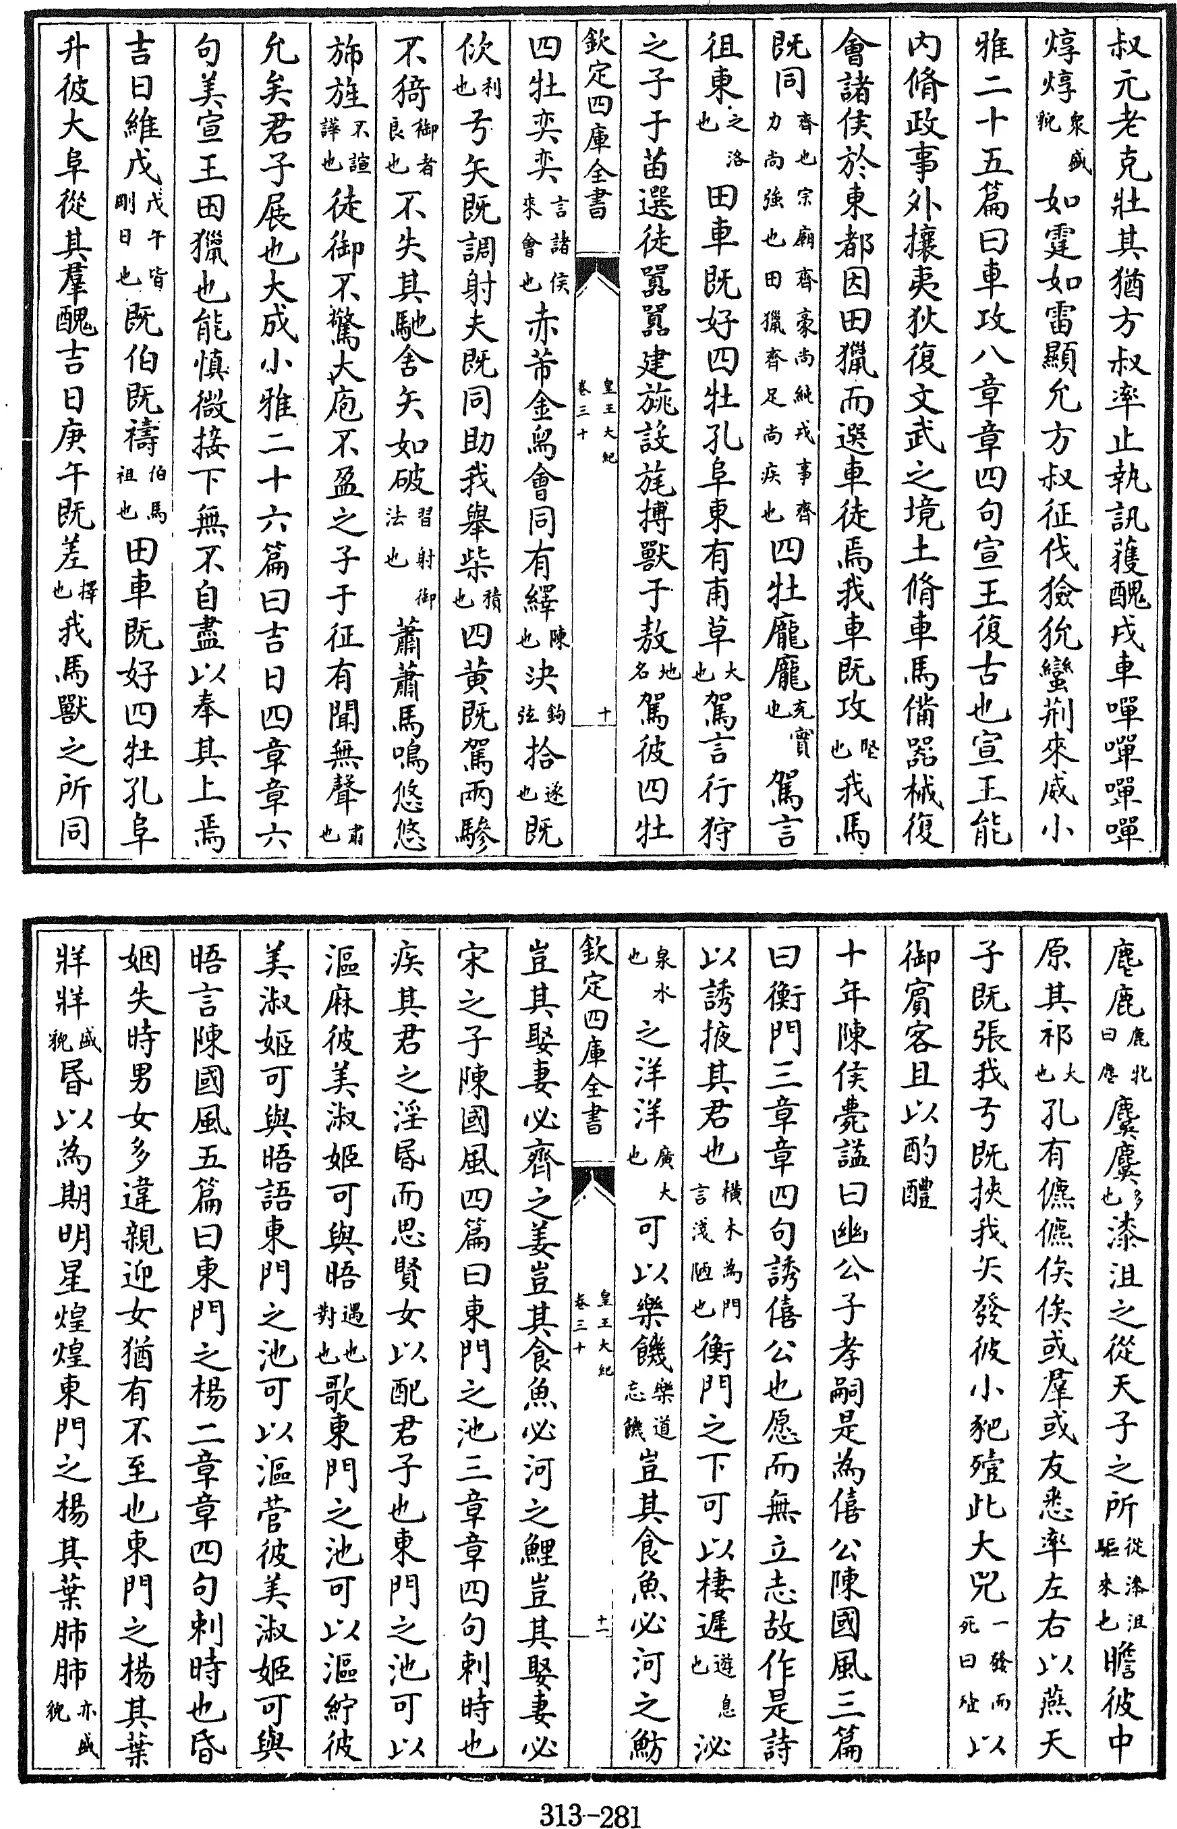 叔元老克壯其猶方叔率止執訊獲醜戎車嘽嘽嘽嘽
焞焞衆盛貌如霆如雷顯允方叔征伐玁狁蠻荆來威小
雅二十五篇曰車攻八章章四句宣王復古也宣王能
内脩政事外攘夷狄復文武之境土脩車馬備器械復
會諸侯於東都因田獵而選車徒焉我車既攻堅也我馬
既同齊也宗廟齊豪尚純戎事齊力尚強也田獵齊足尚疾也四牡龐龐充實也駕言
徂東之洛也田車既好四牡孔阜東有甫草大也駕言行狩
之子于苗選徒嚻嚻建旐設旄搏獸于敖地名駕彼四牡
欽定四庫全書
皇王大紀
卷三十
十
四牡奕奕言諸侯來會也赤芾金舄會同有繹陳也決鉤弦拾遂也既
佽利也弓矢既調射夫既同助我舉柴積也四黄既駕兩驂
不猗御者良也不失其馳舍矢如破習射御法也蕭蕭馬鳴悠悠
斾旌不諠譁也徒御不驚大庖不盈之子于征有聞無聲肅也
允矣君子展也大成小雅二十六篇曰吉日四章章六
句美宣王田獵也能慎微接下無不自盡以奉其上焉
吉日維戊戊午皆剛日也既伯既禱伯馬祖也田車既好四牡孔阜
升彼大阜從其羣醜吉日庚午既差擇也我馬獸之所同
麀鹿鹿牝曰麀麌麌多也漆沮之從天子之所從漆沮驅來也瞻彼中
原其祁大也孔有儦儦俟俟或羣或友悉率左右以燕天
子既張我弓既挾我矢發彼小豝殪此大兕一發而死曰殪以
御賓客且以酌醴
十年陳侯薨諡曰幽公子孝嗣是為僖公陳國風三篇
曰衡門三章章四句誘僖公也愿而無立志故作是詩
以誘掖其君也横木為門言淺陋也衡門之下可以棲遲遊息也泌
泉水也之洋洋廣大也可以樂饑樂道忘饑豈其食魚必河之魴
欽定四庫全書
皇王大紀
卷三十
十一
豈其娶妻必齊之姜豈其食魚必河之鯉豈其娶妻必
宋之子陳國風四篇曰東門之池三章章四句刺時也
疾其君之淫昏而思賢女以配君子也東門之池可以
漚麻彼美淑姬可與晤遇也對也歌東門之池可以漚紵彼
美淑姬可與晤語東門之池可以漚菅彼美淑姬可與
晤言陳國風五篇曰東門之楊二章章四句刺時也昏
姻失時男女多違親迎女猶有不至也東門之楊其葉
牂牂盛貌昏以為期明星煌煌東門之楊其葉肺肺亦盛貌
313-281